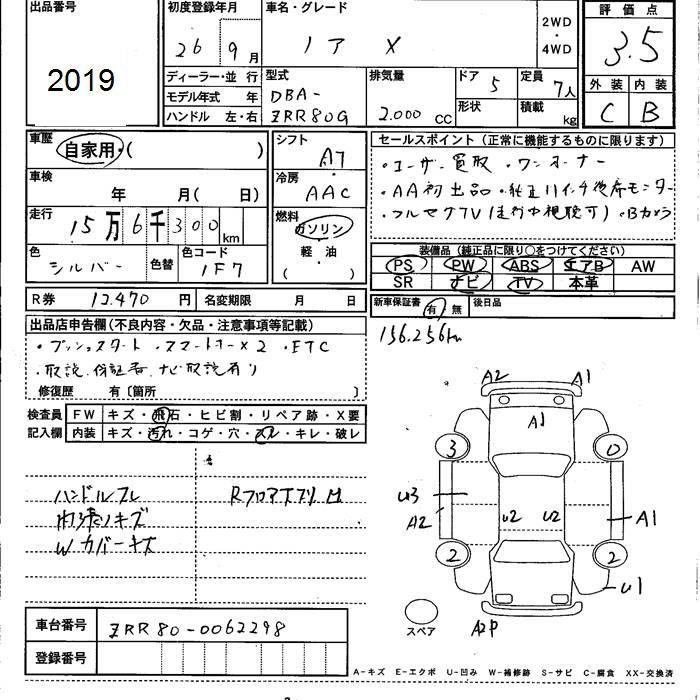 出品番号
2019
初度登録年月
26 9月
車名・グレード
ノア X
2WD
・
4WD
評価点
3.5
外装 内装
C B
ディーラー・並行
モデル年式 年
ハンドル 左・右
型式
DBA-
ZRR80G
排気量
2.000 CC
ドア 5
形状
定員 7人
積載 kg
車歴
自家用・( )
車検
年 月(日)
走行
15万6千300km
色
シルバー
色替
色コード
1F7
シフト
A7
冷房
AAC
燃料
ガソリン
軽油
( )
セールスポイント(正常に機能するものに限ります)
・ユーザー買取 ・ワンオーナー
・AA初出品 ・純正11インチ後席モニター
・フルセグTV(走行中視聴可)・Bカメラ
装備品(純正品に限り○をつけてください)
PS PW ABS エアB AW
SR ナビ TV 本革
R券 12.470円
名変期限 月 日
新車保証書 有・無
後日品
156.256km
出品店申告欄(不良内容・欠品・注意事項等記載)
・プッシュスタート ・スマートキー×2 ・ETC
・取説.保証書.ナビ取説有り
修復歴 有〔箇所 〕
検査員
記入欄
FW キズ・飛石・ヒビ割・リペア跡・X要
内装 キズ・汚れ・コゲ・穴・スレ・キレ・破レ
ハンドルスレ
Rフロア
内張ノキズ
Wカバーキズ
A2 A1
A1
3 0
U3
A2
U2 U2
A1
2 2
U1
スペア
A2P
車台番号
ZRR80-0062298
登録番号
A-キズ E-エクボ U-凹み W-補修跡 S-サビ C-腐食 XX-交換済